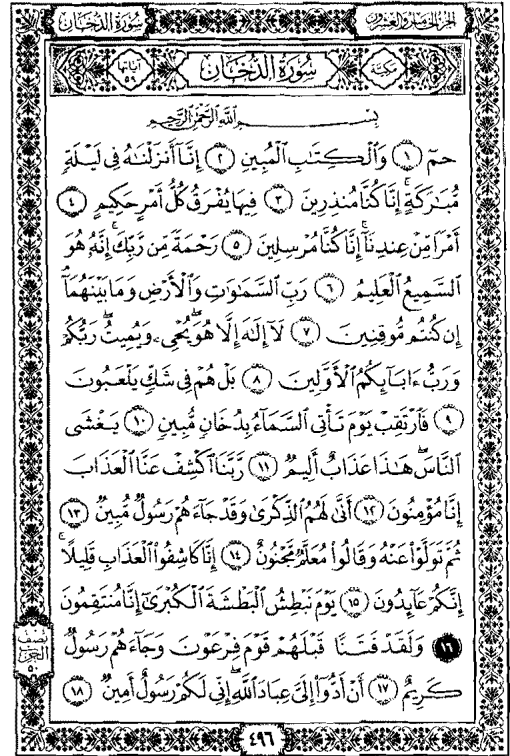 الجزء الخامس والعشرون
سورة الدخان
مكية
سُورَةُ الدُّخَانِ
آياتها ٥٩
بِسْمِ ٱللَّهِ ٱلرَّحْمَٰنِ ٱلرَّحِيمِ
حمٓ ١ وَٱلْكِتَٰبِ ٱلْمُبِينِ ٢ إِنَّآ أَنزَلْنَٰهُ فِى لَيْلَةٍ
مُّبَٰرَكَةٍ ۚ إِنَّا كُنَّا مُنذِرِينَ ٣ فِيهَا يُفْرَقُ كُلُّ أَمْرٍ حَكِيمٍ ٤
أَمْرًا مِّنْ عِندِنَآ ۚ إِنَّا كُنَّا مُرْسِلِينَ ٥ رَحْمَةً مِّن رَّبِّكَ ۚ إِنَّهُۥ هُوَ
ٱلسَّمِيعُ ٱلْعَلِيمُ ٦ رَبِّ ٱلسَّمَٰوَٰتِ وَٱلْأَرْضِ وَمَا بَيْنَهُمَآ ۖ
إِن كُنتُم مُّوقِنِينَ ٧ لَآ إِلَٰهَ إِلَّا هُوَ يُحْىِۦ وَيُمِيتُ ۖ رَبُّكُمْ
وَرَبُّ ءَابَآئِكُمُ ٱلْأَوَّلِينَ ٨ بَلْ هُمْ فِى شَكٍّ يَلْعَبُونَ
٩ فَٱرْتَقِبْ يَوْمَ تَأْتِى ٱلسَّمَآءُ بِدُخَانٍ مُّبِينٍ ١٠ يَغْشَى
ٱلنَّاسَ ۖ هَٰذَا عَذَابٌ أَلِيمٌ ١١ رَّبَّنَا ٱكْشِفْ عَنَّا ٱلْعَذَابَ
إِنَّا مُؤْمِنُونَ ١٢ أَنَّىٰ لَهُمُ ٱلذِّكْرَىٰ وَقَدْ جَآءَهُمْ رَسُولٌ مُّبِينٌ ١٣
ثُمَّ تَوَلَّوْا۟ عَنْهُ وَقَالُوا۟ مُعَلَّمٌ مَّجْنُونٌ ١٤ إِنَّا كَاشِفُوا۟ ٱلْعَذَابِ قَلِيلًا ۚ
إِنَّكُمْ عَآئِدُونَ ١٥ يَوْمَ نَبْطِشُ ٱلْبَطْشَةَ ٱلْكُبْرَىٰٓ إِنَّا مُنتَقِمُونَ
١٦ وَلَقَدْ فَتَنَّا قَبْلَهُمْ قَوْمَ فِرْعَوْنَ وَجَآءَهُمْ رَسُولٌ
كَرِيمٌ ١٧ أَنْ أَدُّوٓا۟ إِلَىَّ عِبَادَ ٱللَّهِ ۖ إِنِّى لَكُمْ رَسُولٌ أَمِينٌ ١٨
نصف
الحزب
٥٠
٤٩٦